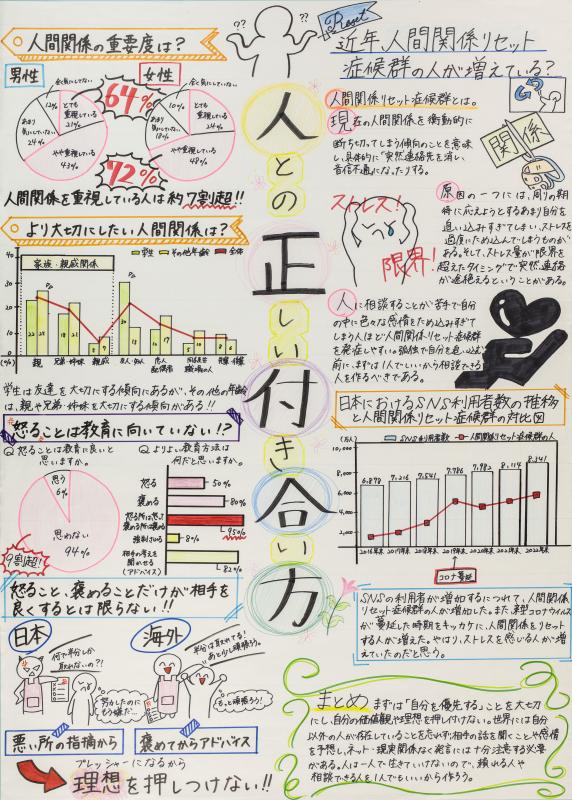 人間関係の重要度は？
男性
女性
全く気にしていない
12%
とても
重視している
21%
あまり
気にしていない
24%
やや重視している
43%
64%
全く気にしていない
10%
とても
重視している
24%
あまり
気にしていない
18%
やや重視している
48%
72%
人間関係を重視している人は約7割超!!
より大切にしたい人間関係は？
学生
その他年齢
全体
家族・親戚関係
親
兄弟・姉妹
親戚
友人・知人
恋人
配偶者
先輩・後輩
(%)
学生は友達を大切にする傾向にあるが、その他の年齢
は、親や兄弟・姉妹を大切にする傾向がある!!
怒ることは教育に向いていない!?
Q 怒ることは教育に良いと
思いますか。
思う
6%
思わない
94%
9割超!
Q よりよい教育方法は
何だと思いますか。
怒る
50%
褒める
80%
怒る所は怒って
褒める所は褒める
95%
強制させる
8%
相手の考えを
聞かせる
(アドバイス)
82%
怒ること、褒めることだけが相手を
良くするとは限らない!!
日本
何で半分しか
取れないの?!
努力したのに
もう嫌だ…
海外
半分は取れてる!
あと少し頑張ろう。
もっと頑張ろう!
悪い所の指摘から
褒めてからアドバイス
プレッシャーになるから
理想を押しつけない!!
人との正しい付き合い方
??
??
Reset
近年、人間関係リセット
症候群の人が増えている？
人間関係リセット症候群とは。
現在の人間関係を衝動的に
断ち切ってしまう傾向のことを意味
し、具体的に「突然連絡先を消し、
音信不通に」なったりする。
関係
ストレス!
限界!
原因の一つには、周りの期
待に応えようとするあまり自分を
追い込みすぎてしまい、ストレスを
過度にため込んでしまうものが
ある。そして、ストレス量が限界を
超えたタイミングで突然連絡
が途絶えるということがある。
人に相談することが苦手で自分
の中に色々な感情をため込みすぎ
てしまう人ほど人間関係リセット症候群
を発症しやすい。孤独で自分を追い込む
前に、まずは1人でいいから相談できる
人を作るべきである。
日本におけるSNS利用者数の推移
と人間関係リセット症候群の対比図
(万人)
SNS利用者数
人間関係リセット症候群の人
10,000
8,000
6,000
4,000
2,000
6,878
7,216
7,541
7,786
7,982
8,114
8,241
2016年末
2017年末
2018年末
2019年末
2020年末
2021年末
2022年末
コロナ蔓延
SNSの利用者が増加するにつれて、人間関係
リセット症候群の人が増加した。また、新型コロナウイルス
が蔓延した時期をキッカケに、人間関係をリセット
する人が増えた。やはり、ストレスを感じる人が増え
ていたのだと思う。
まとめ まずは「自分を優先する」ことを大切
にし、自分の価値観や理想を押し付けない。世界には自分
以外の人が存在していることをためらず相手の話を聞くことや感情
を予想し、ネット・現実関係なく発言には十分注意する必要
がある。人は一人で生きていけないので、頼れる人や
相談できる人を1人でもいいから作ろう。